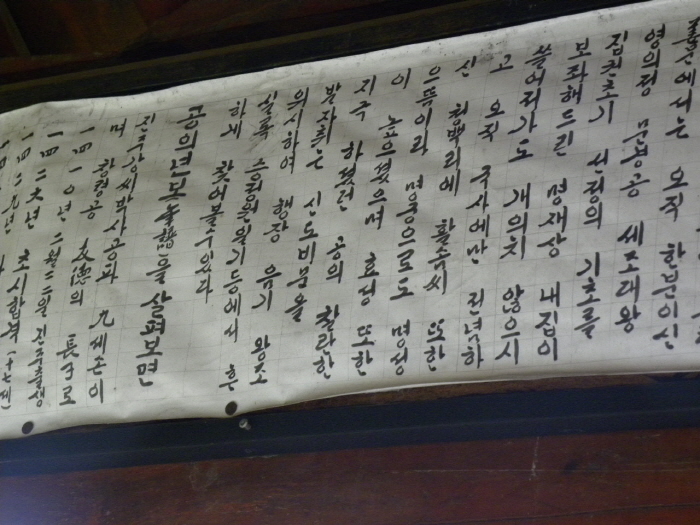 산에서는 오직 한분이신
영의정 문경공 세조대왕
집권초기 선정의 기초를
보좌해드린 명재상 내집이
쓸어져가도 개의치 않으시
고 오직 국사에만 전념하
신 청백리에 활솜씨 또한
으뜸이라 명궁으로도 명성
이 높으셨으며 효성 또한
지극 하셨던 공의 찰란한
발자취는 신도비문을
위시하여 행장 음기 왕조
실록 승정원일기등에서 흔
하게 찾아볼수있다
공의년보年譜을 살펴보면
진주강씨박사공파 九세손이
며 창령공 友德의 長子로
一四一0년 二월二二일 진주출생
一四二九년 초시합격 (十七세)